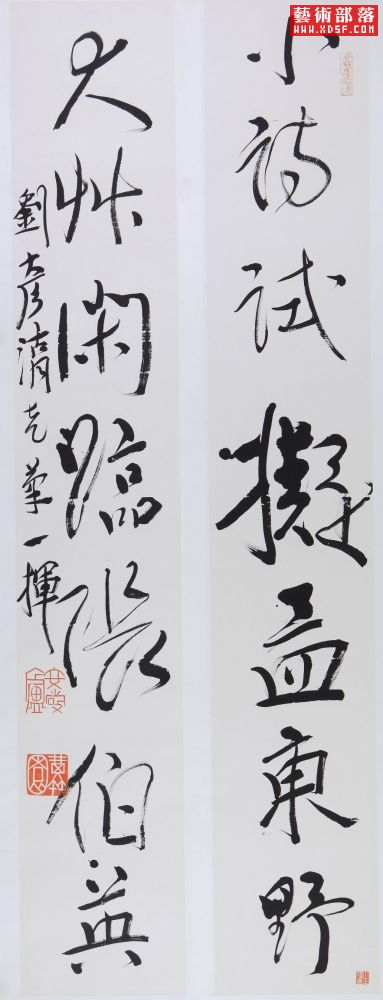 藝術部落
www.XDSF.com
小詩試擬孟東野
大艸閑臨張伯英
劉彥湖 筆一揮